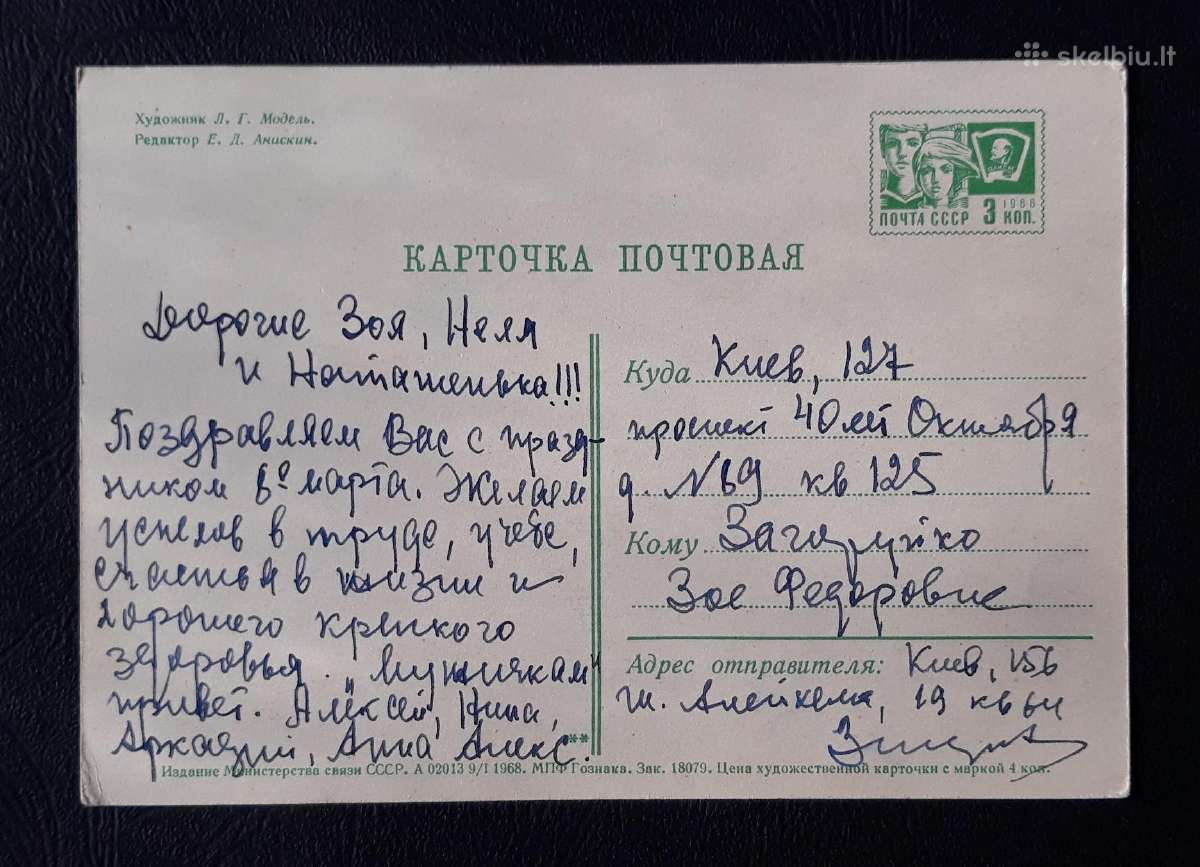 skelbiu.lt
Художник Л. Г. Модель.
Редактор Е. Д. Анискин.
ПОЧТА СССР 3 КОП.
1966
КАРТОЧКА ПОЧТОВАЯ
Дорогие Зоя, Неля
и Наташенька!!!
Поздравляем Вас с празд-
ником 8º марта. Желаем
успехов в труде, учебе,
счастья в жизни и
хорошего крепкого
здоровья. „Мужичкам"
привет. Алексей, Нина,
Аркадий, Анна Алекс.
**
Куда Киев, 127
проспект 40 лет Октября
д. №69 кв 125
Кому
Зое Федоровне
Адрес отправителя: Киев, 156
Ш. Алейхема, 19 кв
Издание Министерства связи СССР. А 02013 9/I 1968. МПФ Гознака. Зак. 18079. Цена художественной карточки с маркой 4 коп.